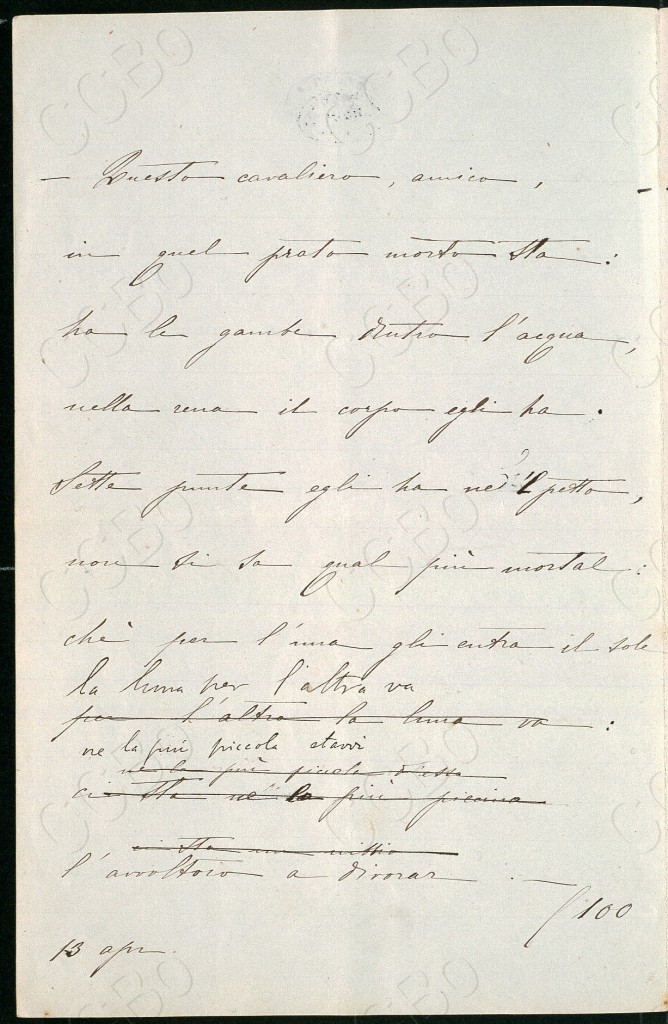 — Questo cavaliero, amico,
in quel prato morto sta:
ha le gambe dentro l'acqua,
nella rena il corpo egli ha.
Sette punte egli ha nel petto,
non si sa qual più mortal:
chè per l'una gli entra il sole
la luna per l'altra va
per l'altra la luna va:
ne la più piccola stavvi
ne la più piccola d'esse
ci sta ne la più piccina
ci sta un
l'avvoltoio a divorar. —
(100
13 apr.
CCBO